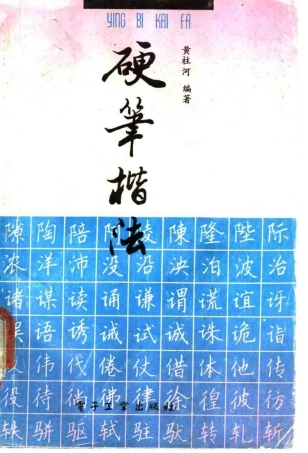 YING BI KAI FA
黄柱河 编著
硬筆楷法
隙陶陪陵陳隆陛际
浓洋沛没沿泱泊波沿
诸谋读诵谦谓谎谊讶
语诱诫试诚诛诡诣
伟伐倦仗借体他传
役待徜佛律徐徨彼彷
轶骈驱轼驻驮转轧斩
电子工业出版社